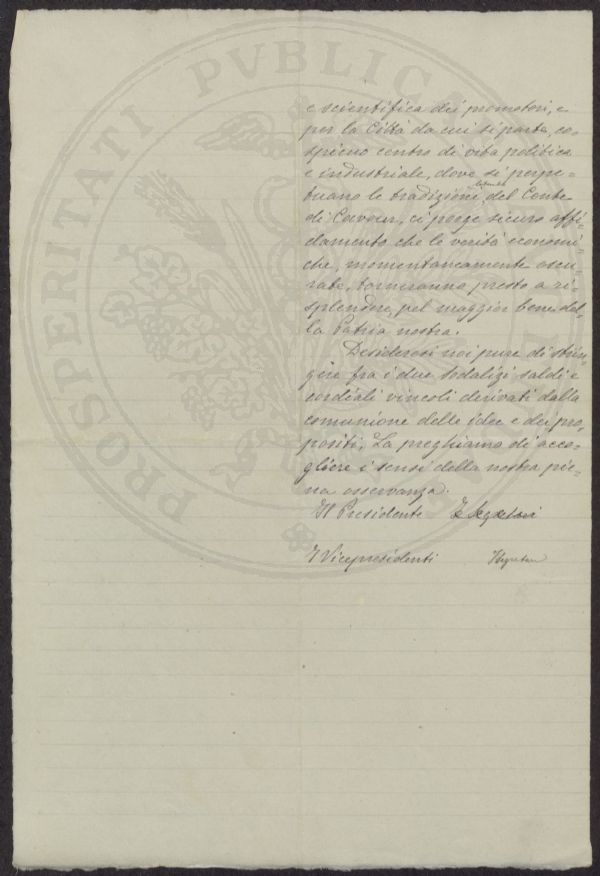 PROSPERITATI PVBLICA
e scientifica dei promotori, e
per la Città da cui si parte, co-
spicuo centro di vita politica
e industriale, dove si perpe-
tuano le tradizioni del Conte
di Cavour, ci porge sicuro affi-
damento che le verità economi-
che, momentaneamente oscu-
rate, torneranno presto a ri-
splendere, pel maggior bene del-
la Patria nostra.
Desiderosi noi pure di strin-
gere fra i due Sodalizi saldi e
cordiali vincoli derivati dalla
comunione delle idee e dei pro-
positi, La preghiamo di acco-
gliere i sensi della nostra pie-
na osservanza.
Il Presidente Il Segretari
I Vicepresidenti I Segretari